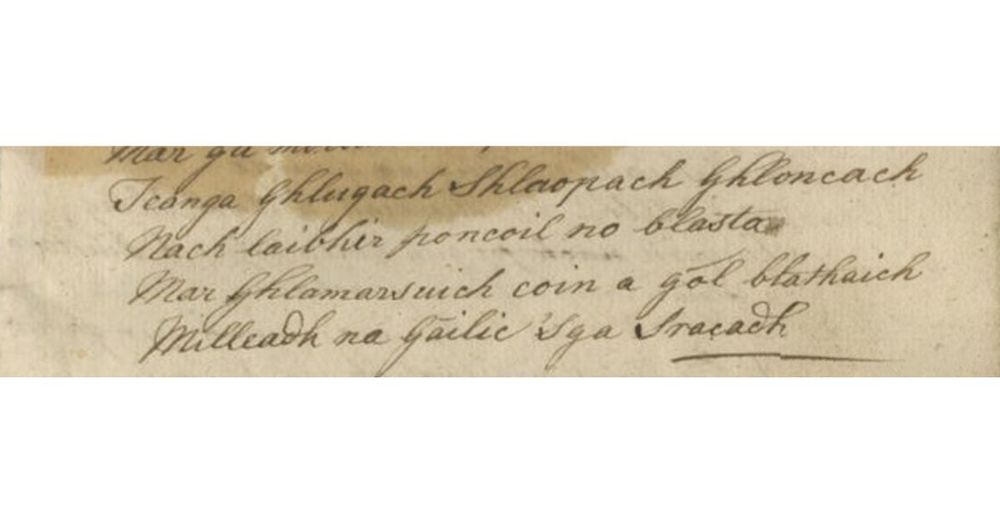 Mar gu
Teanga Ghlugach Shlaopach Ghloncach
Nach laibhir poncoil no blasta
Mar Ghlamarsuich coin a gòl blathaich
Milleadh na Gàilic 'Sga Sracadh